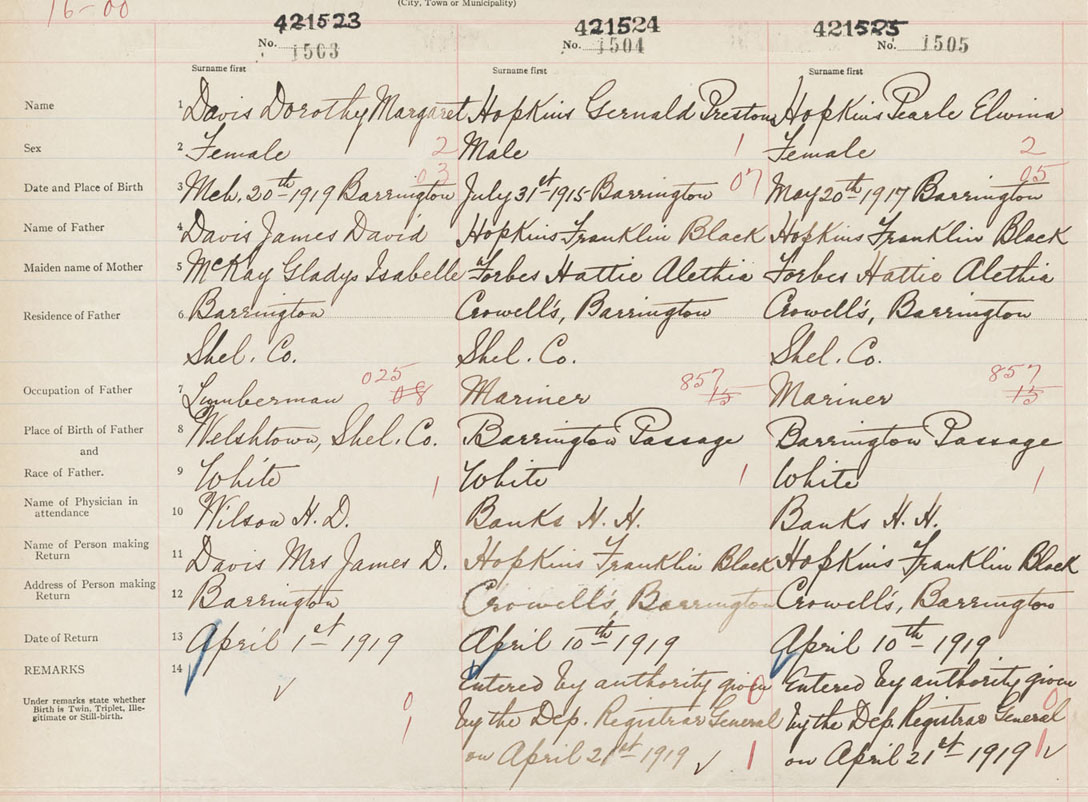 (City, Town or Municipality)
16-00
421523 421524 421525
No. 1503 No. 1504 No. 1505
Surname first Surname first Surname first
Name 1 Davis Dorothy Margaret Hopkins Gernald Preston Hopkins Pearle Elwina
Sex 2 Female 2 Male 1 Female 2
Date and Place of Birth 3 Mch. 20th 1919 Barrington 03 July 31st 1915 Barrington 07 May 20th 1917 Barrington 05
Name of Father 4 Davis James David Hopkins Franklin Black Hopkins Franklin Black
Maiden name of Mother 5 McKay Gladys Isabelle Forbes Hattie Alethia Forbes Hattie Alethia
Residence of Father 6 Barrington Crowell's, Barrington Crowell's, Barrington
Shel. Co. Shel. Co. Shel. Co.
Occupation of Father 7 Lumberman 025 08 Mariner 857 15 Mariner 857 15
Place of Birth of Father 8 Welshtown, Shel. Co. Barrington Passage Barrington Passage
and
Race of Father. 9 White 1 White 1 White 1
Name of Physician in
attendance 10 Wilson H. D. Banks H. H. Banks H. H.
Name of Person making
Return 11 Davis Mrs James D. Hopkins Franklin Black Hopkins Franklin Black
Address of Person making
Return 12 Barrington Crowell's, Barrington Crowell's, Barrington
Date of Return 13 April 1st 1919 April 10th 1919 April 10th 1919
REMARKS 14 Entered by authority given Entered by authority given
Under remarks state whether
Birth is Twin, Triplet, Ille-
gitimate or Still-birth.
0 0 0
by the Dep. Registrar General by the Dep. Registrar General
1 on April 21st 1919 1 on April 21st 1919 1